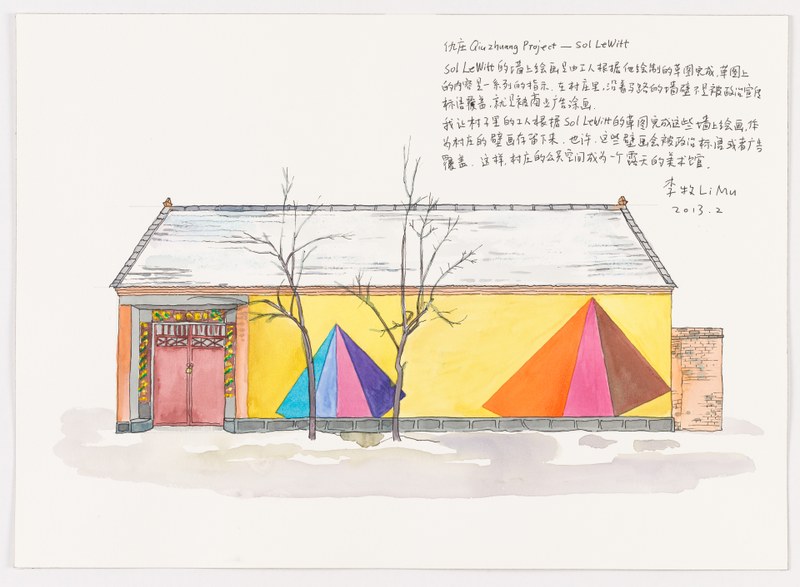 仇庄 Qiuzhuang Project — Sol LeWitt
Sol LeWitt 的墙上绘画是由工人根据他绘制的草图完成,草图上
的内容是一系列的指示。在村庄里,沿着马路的墙壁不是被政治宣传
标语覆盖,就是被商业广告涂画。
我让村子里的工人根据 Sol LeWitt 的草图完成这些墙上绘画,作
为村庄的壁画存留下来。也许,这些壁画会被政治标语或者广告
覆盖。这样,村庄的公共空间成为一个露天的美术馆。
李牧 Li Mu
2013.2